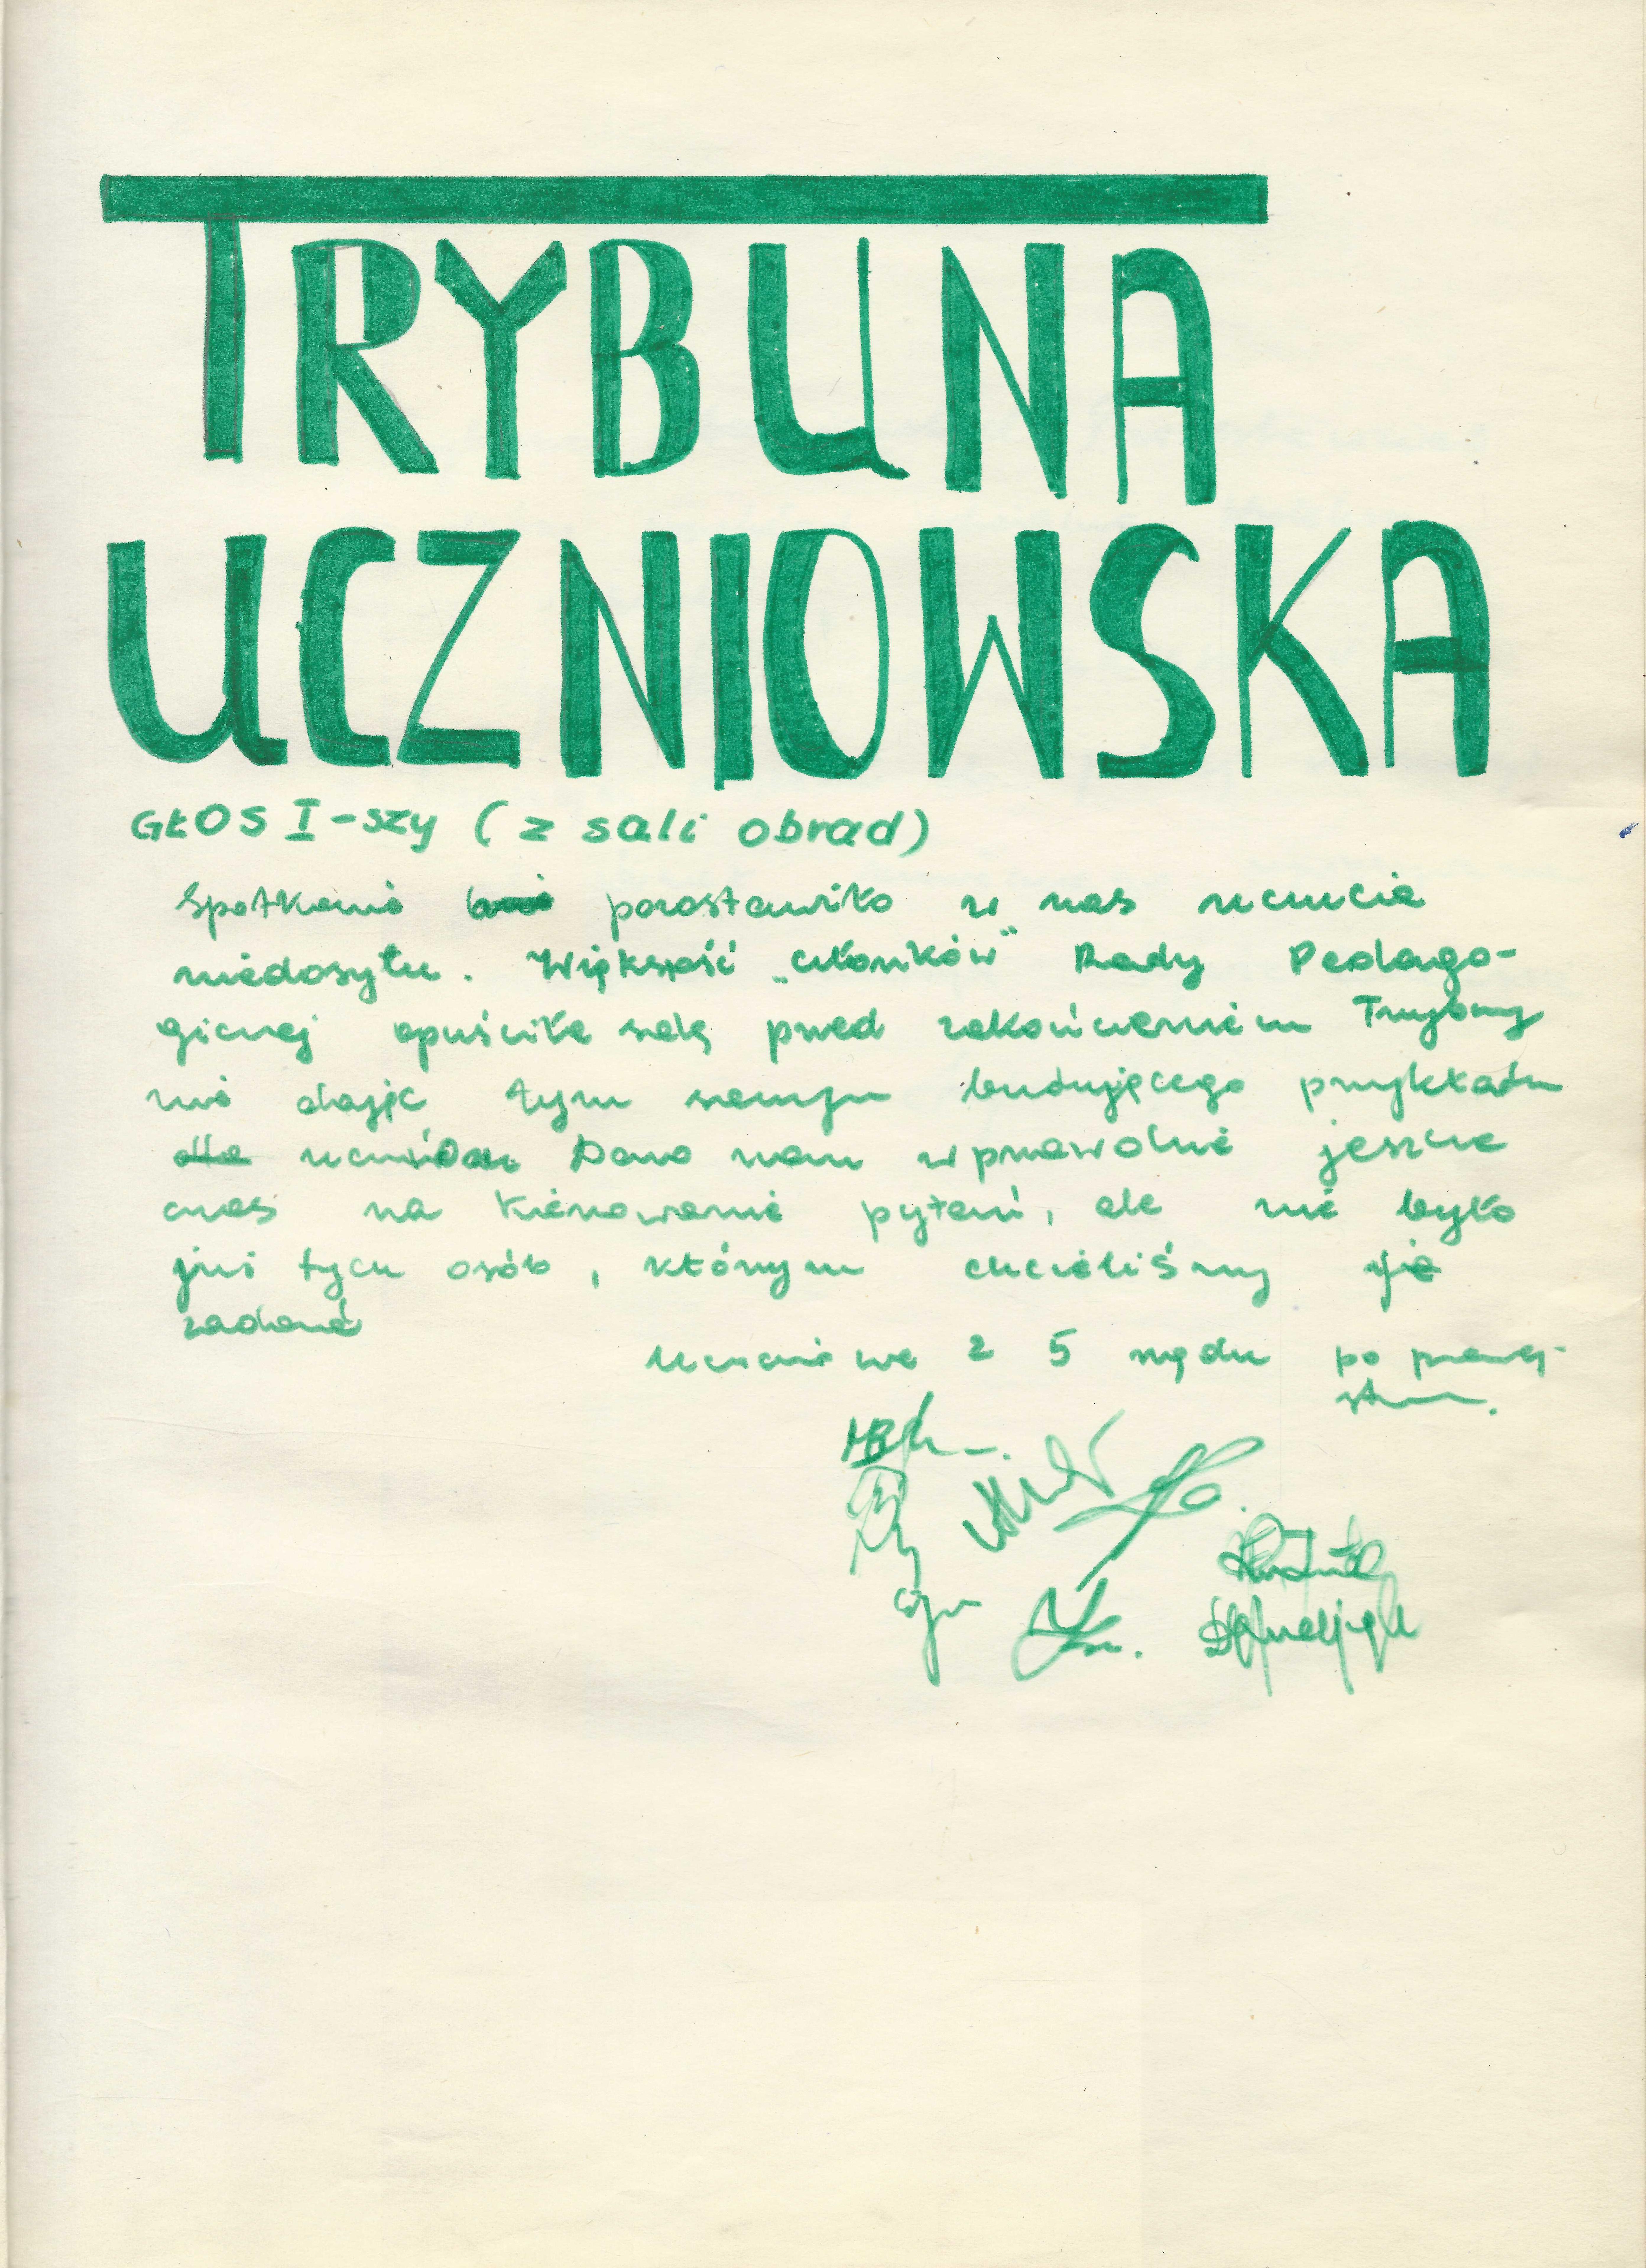 TRYBUNA
UCZNIOWSKA
GŁOS I-szy (z sali obrad)
Spotkanie pozostawiło w nas uczucie
niedosytu. Większość „członków" Rady Pedago-
gicznej opuściła salę przed zakończeniem Trybuny
nie dając tym samym budującego przykładu
uczniom Dano nam wprawdzie jeszcze
czas na kierowanie pytań, ale nie było
już tych osób, którym chcieliśmy je
zadać
Uczniowie z 5 rzędu po prawej
stronie.